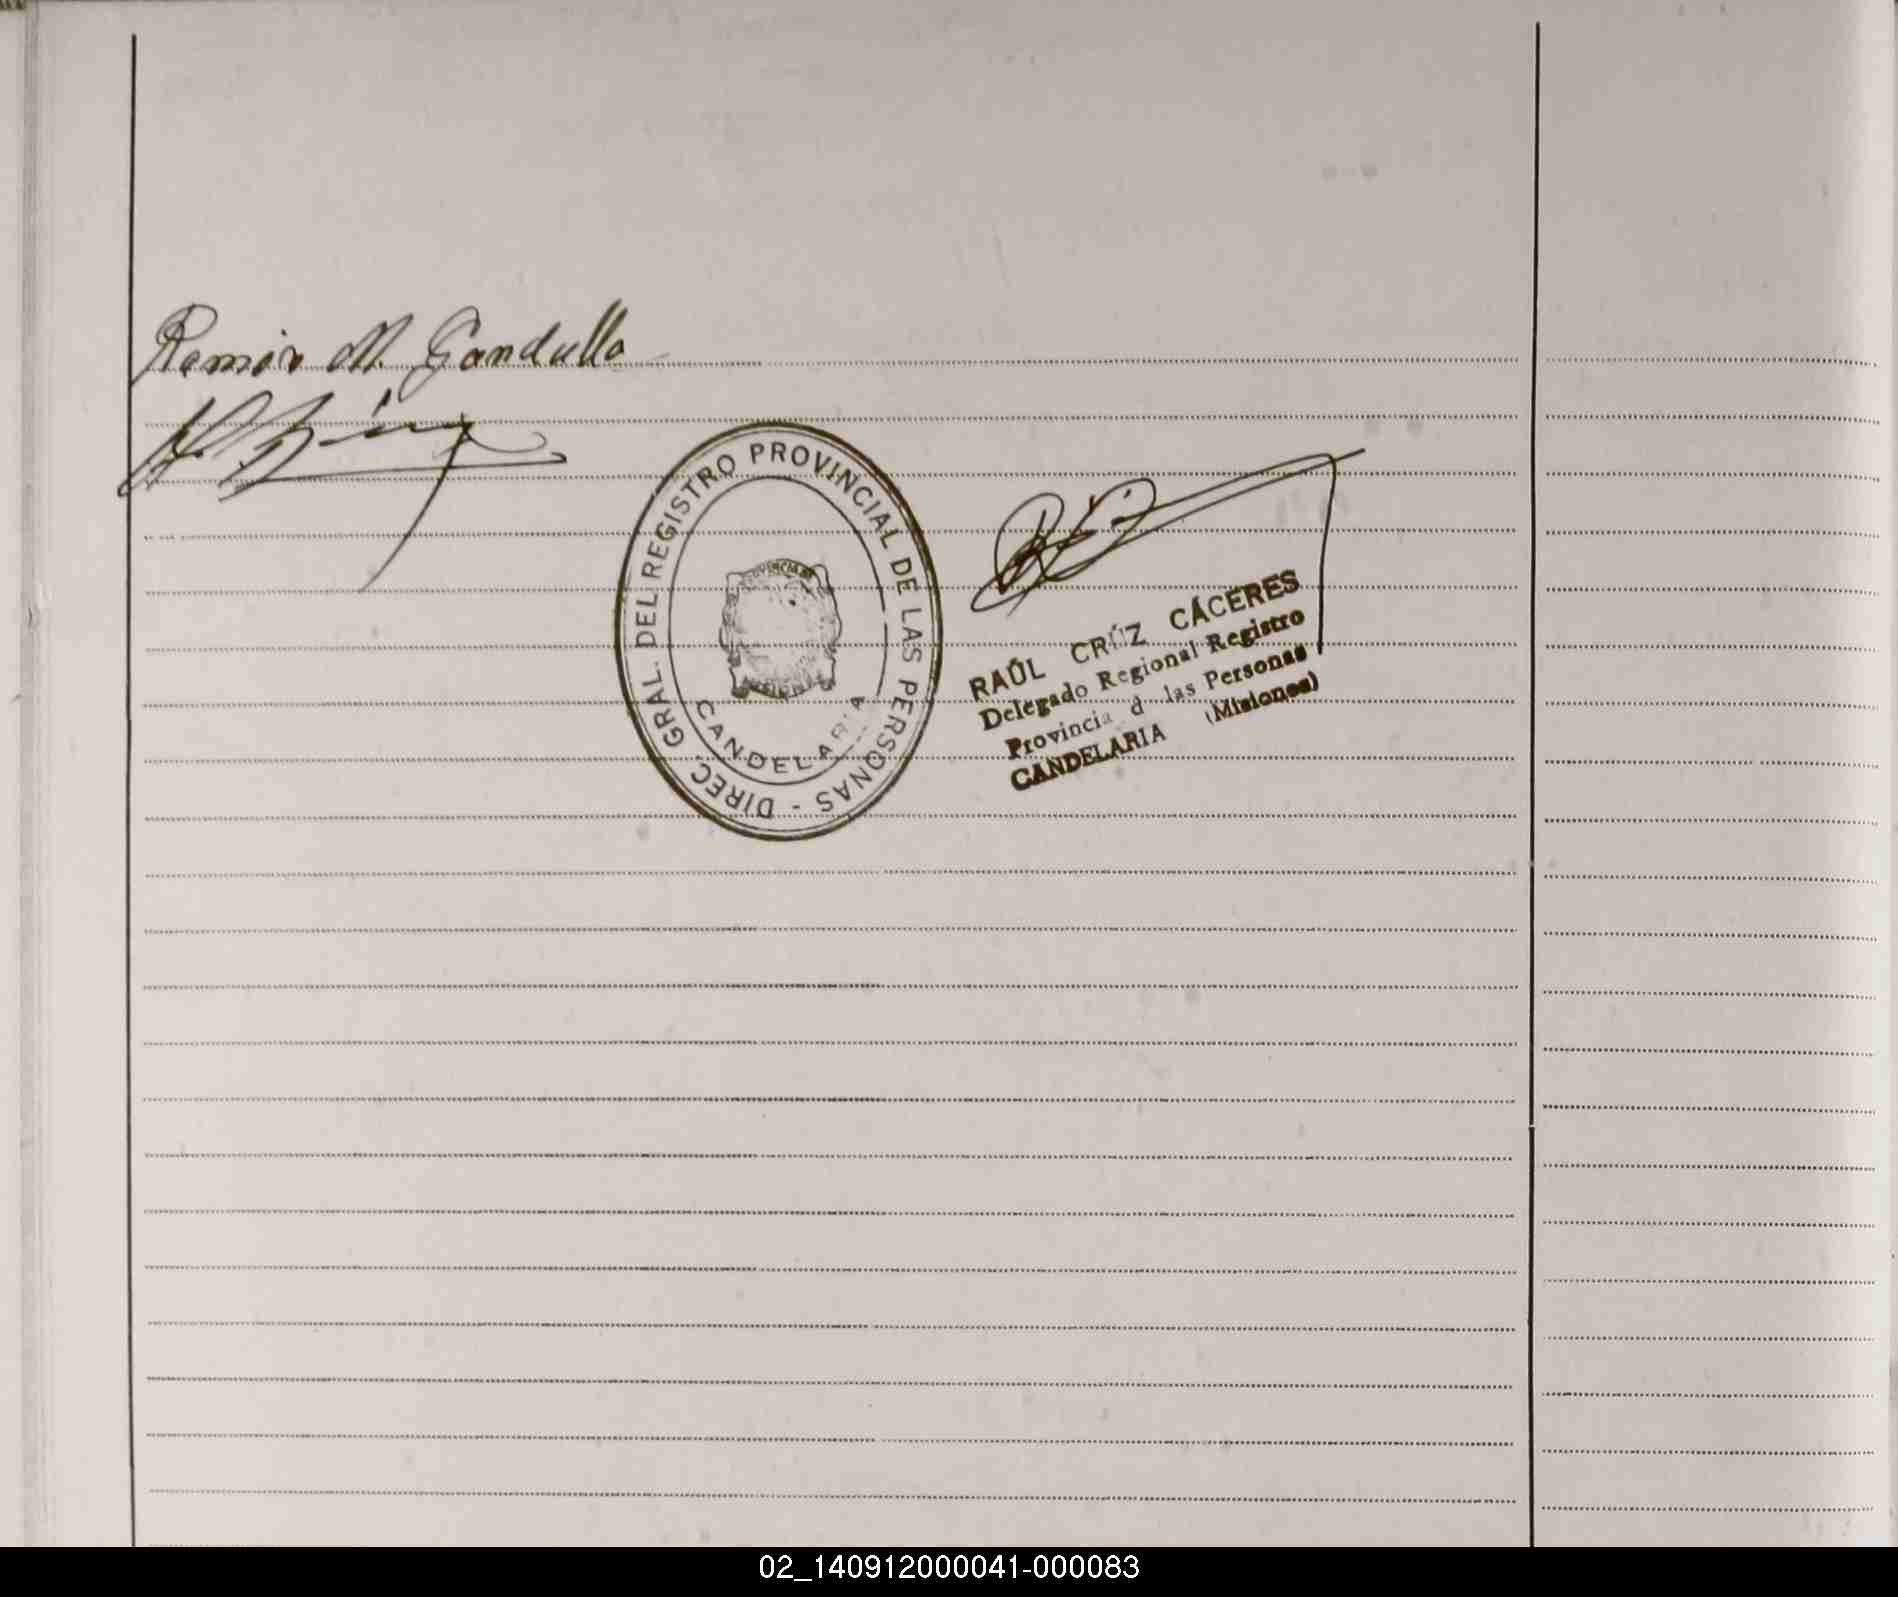 Ramón M. Gandulla
DIREC. GRAL. DEL REGISTRO PROVINCIAL DE LAS PERSONAS -
CANDELARIA
RAÚL CRÚZ CÁCERES
Delegado Regional Registro
Provincia d las Personas
CANDELARIA (Misiones)
02_140912000041-000083